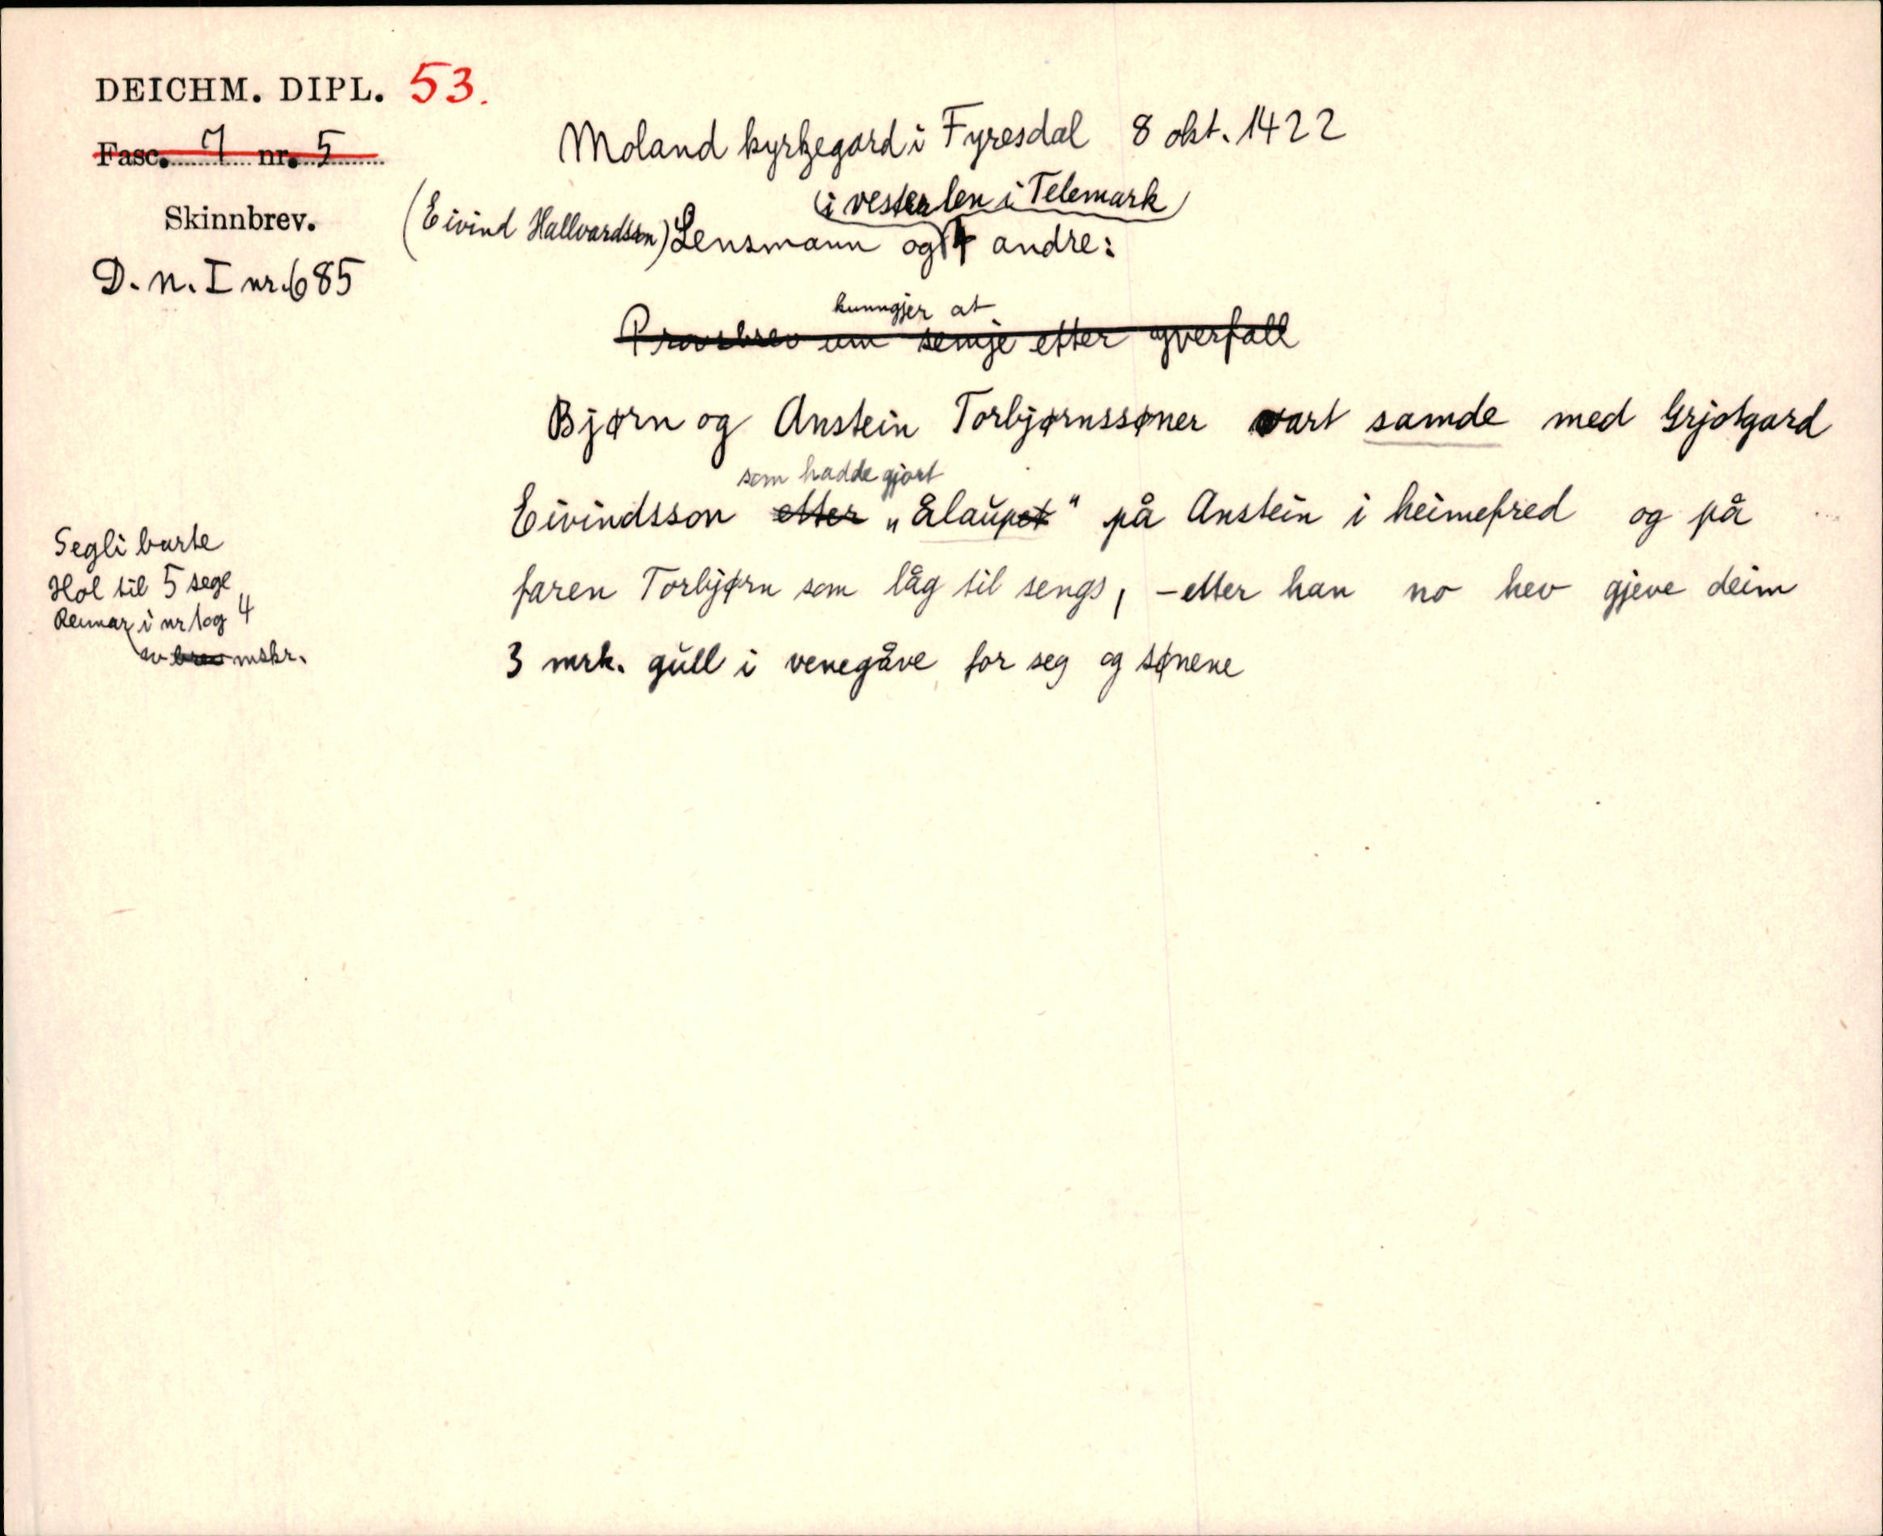 DEICHM. DIPL. 53.
Fasc. 7 nr. 5
Skinnbrev.
D. N. I nr. 685
Moland kyrkjegard i Fyresdal 8 okt. 1422
(i vesterlen i Telemark)
(Eivind Hallvardsson) Lensmann og 4 andre:
kunngjer at
Provsbrev um semje etter yverfall
Bjørn og Anstein Torbjørnssøner vart samde med Grjotgard
som hadde gjort
Eivindsson etter „ålaupet" på Anstein i heimefred og på
faren Torbjørn som låg til sengs, - etter han no hev gjeve deim
3 mrk. gull i venegåve for seg og sønene
Segli burte
Hol til 5 segl
Reimar i nr 1 og 4
av brev mskr.